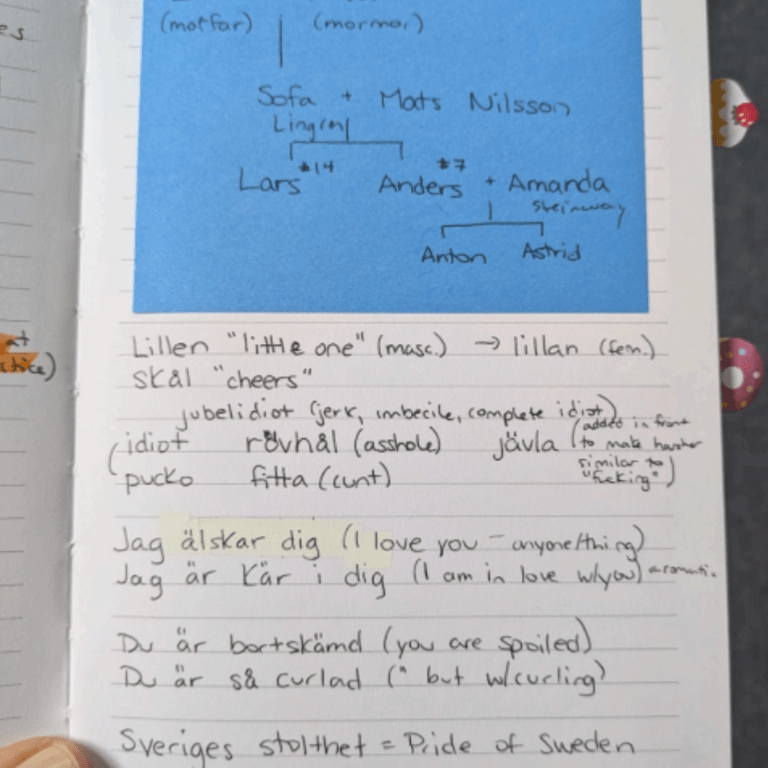 es
(morfar) (mormor)
Sofa + Mats Nilsson
Lingren
Lars #14 Anders #7 + Amanda
Steinway
Anton Astrid
at
ctice)
Lillen "little one" (masc.) → lillan (fem.)
skål "cheers"
jubelidiot (jerk, imbecile, complete idiot)
(idiot rövhål (asshole) jävla (added in front to make harsher similar to "fucking")
pucko fitta (cunt)
Jag älskar dig (I love you - anyone/thing)
Jag är kär i dig (I am in love w/you) aromati.
Du är bortskämd (you are spoiled)
Du är så curlad (" but w/curling)
Sveriges stolthet = Pride of Sweden